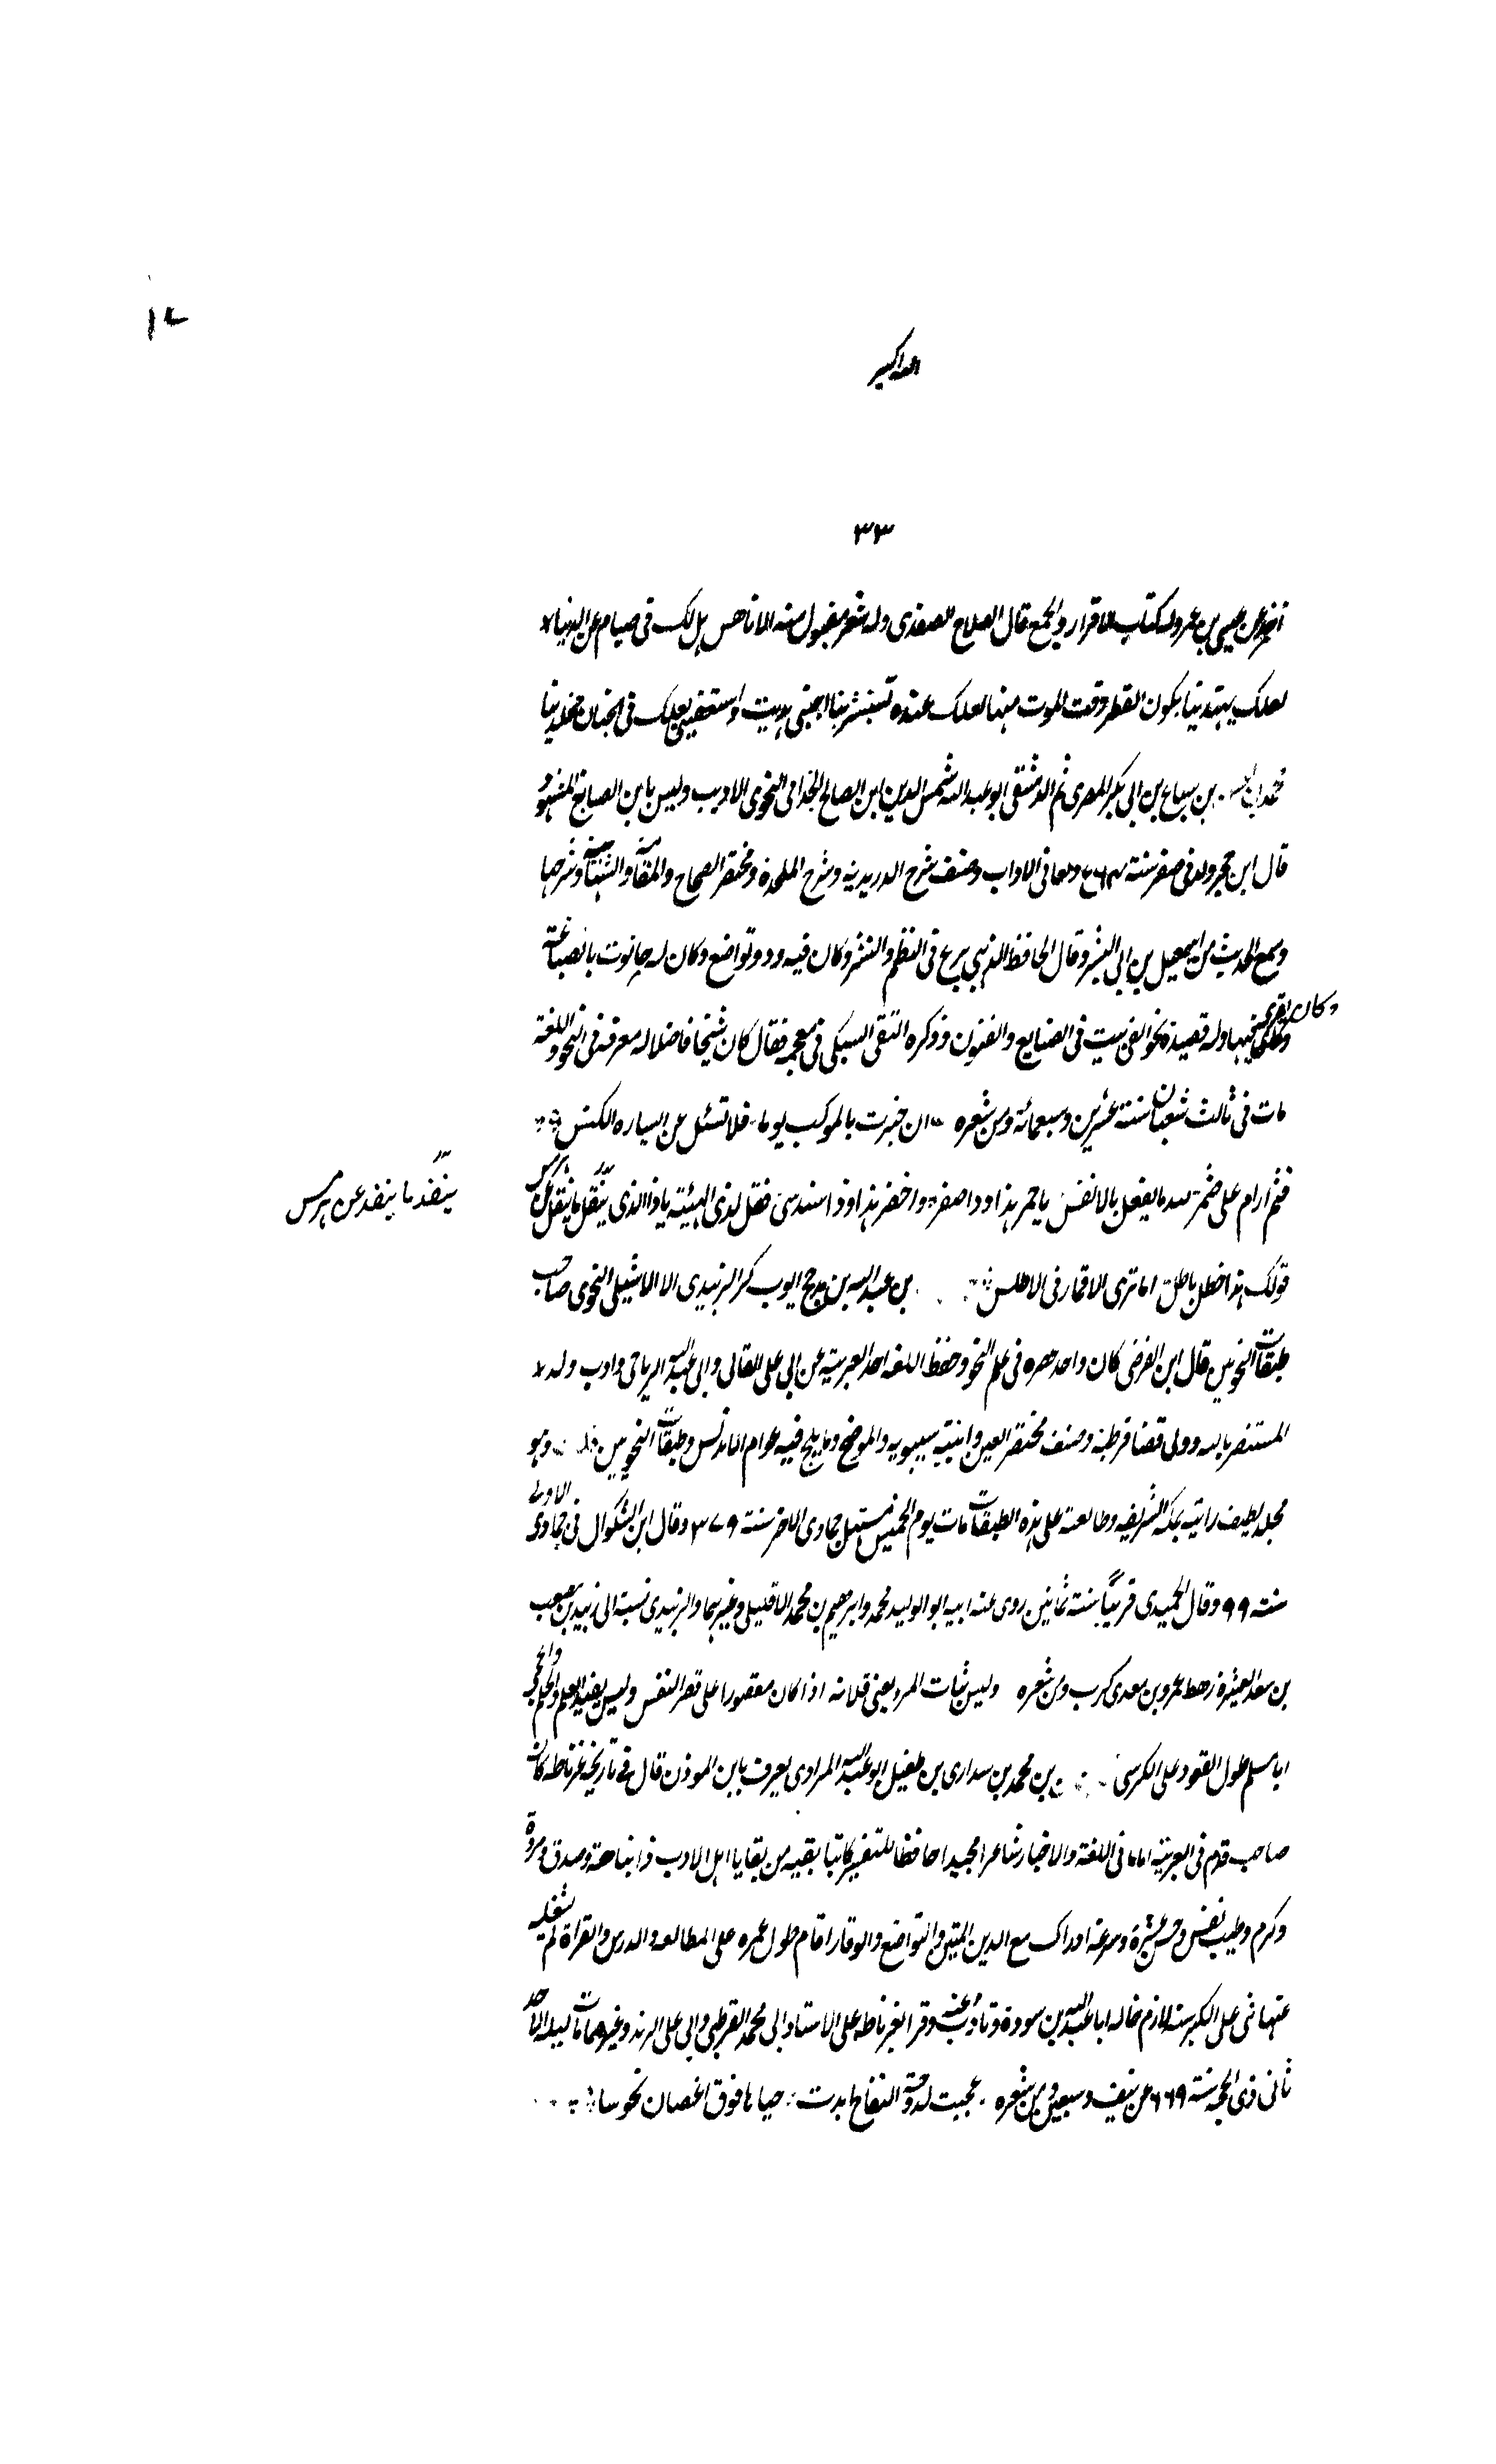 ١٧
الله اكبر
٣٣
عن يحيى بن عمر وله كتاب الاقرار والجمع قال الصلاح الصفدى وله شعر مقبول منه الا ناهس بل لك فى صيام عن الدنيا
لعلك يهتدينا يكون الفطر وقت الموت منها لعلك عنده تستبشرينا اجيبى هديت واسعفينى لعلك فى الجنان تخلدينا
محمد بن الحسن بن سباع بن ابى بكر المصرى ثم الدمشقى ابو عبد الله شمس الدين ابن الصائغ الجذامى النحوى الاديب وليس بابن الصايغ المشهور
قال ابن حجر ولد فى صفر سنة وعانى الاداب وصنف شرح الدريدية وشرح الملحة ومختصر الصحاح والمقامة الشهابية وشرحها
وسمع الحديث من اسمعيل بن ابى اليسر وقال الحافظ الذهبى برع فى النظم والنثر وكان فيه ود وتواضع وكان له حانوت بالصباغة
وكان يقرى
فيها وله قصيدة نحو الفى بيت فى الصنايع والفنون وذكره التقى السبكى فى معجمه فقال كان شيخا فاضلا له معرفة فى النحو واللغة
مات فى ثالث شعبان سنة عشرين وسبعمائة ومن شعره ان جزت بالموكب يوما فلا تسئل عن السياره الكنس
فثم ارام على ضمر لله ما يفعل بالانفس باحمر هذا وذا اصفر واخضر هذا وذا سندسى فقل لذى الهيئة يا ذا الذى ينقل ما ينقل عن هرمس
ينفذ ما ينفد عن هرمس
قولك هذا خطل باطل اما ترى الاقمار فى الاطلس بن عبد الله بن مذحج ابوبكر الزبيدى الاشبيلى النحوى صاحب
طبقات النحويين قال ابن الفرضى كان واحد عصره فى علم النحو وحفظ اللغة اخذ العربية عن ابى على القالى وابى عبد الله الرياحى وادب ولد
المستنصر بالله وولى قضا قرطبة وصنف مختصر العين وابنية سيبويه والموضح وما يلحن فيه عوام الاندلس وطبقات النحويين وهو
مجلد لطيف رايته بمكة الشريفه وطالعته على هذه الطبقات مات يوم الخميس مستهل جمادى الاخر سنة ٣٧٩ وقال ابن بشكوال فى جمادى الاولى
سنة ٩٩ وقال الحميدى قريبا سنة ثمانين روى عنه ابنه ابو الوليد محمد وابرهيم بن محمد الافليلى وغيرهما والزبيدى نسبة الى زبيد بن صعب
بن سعد العشيرة رهط عمرو بن معدى كرب ومن شعره وليس ثياب المرء يعنى قلامة اذا كان مقصورا على قصر النفس وليس يفيد العلم والحلم والحجى
ابا مسلم طول القعود على الكرسى بن محمد بن سدارى بن طفيل ابو عبد الله المرادى يعرف بابن الموذن قال فى تاريخ غرناطه كان
صاحب قدم فى العربية اماما فى اللغة والاخبار شاعرا مجيدا حافظا للتفسير كاتبا بقية من بقايا اهل الادب ذا نباهة وصدق ومروة
وكرم وطيب نفس وحسن عشرة وسرعة ادراك مع الدين المتين والتواضع والوقار اقام طول عمره على المطالعه والدرس والقراة لم يشغله
عنها شى على الكبر سنه لازم خاله ابا عبد الله بن سودة وتادب عنه وقرا بغرناطه على الاستاد ابى محمد القرطبى وابى على الرندى وغيرهما مات ليلة الاحد
ثانى ذى الحجة سنة ٦٦٩ عن نيف وسبعين ومن شعره عجبت لدوحة التفاح ابدت حيا با فوق اغصان نحوسا